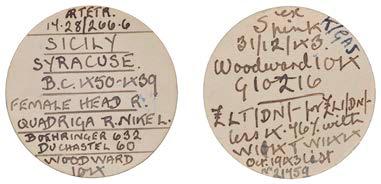 AR TETR.
14.28/266.6
SICILY
SYRACUSE.
B.C. 1X50-1X39
FEMALE HEAD R.
QUADRIGA R. NIKE L.
BOEHRINGER 632
DUCHASTEL 60
WOODWARD
101X
ex
Spink
31/12/1X3.
Woodward 101X
G10216
£LT/DN/- for £L1/DN/-
less 1X.46% with
Oct. 191X3 list
No 21759